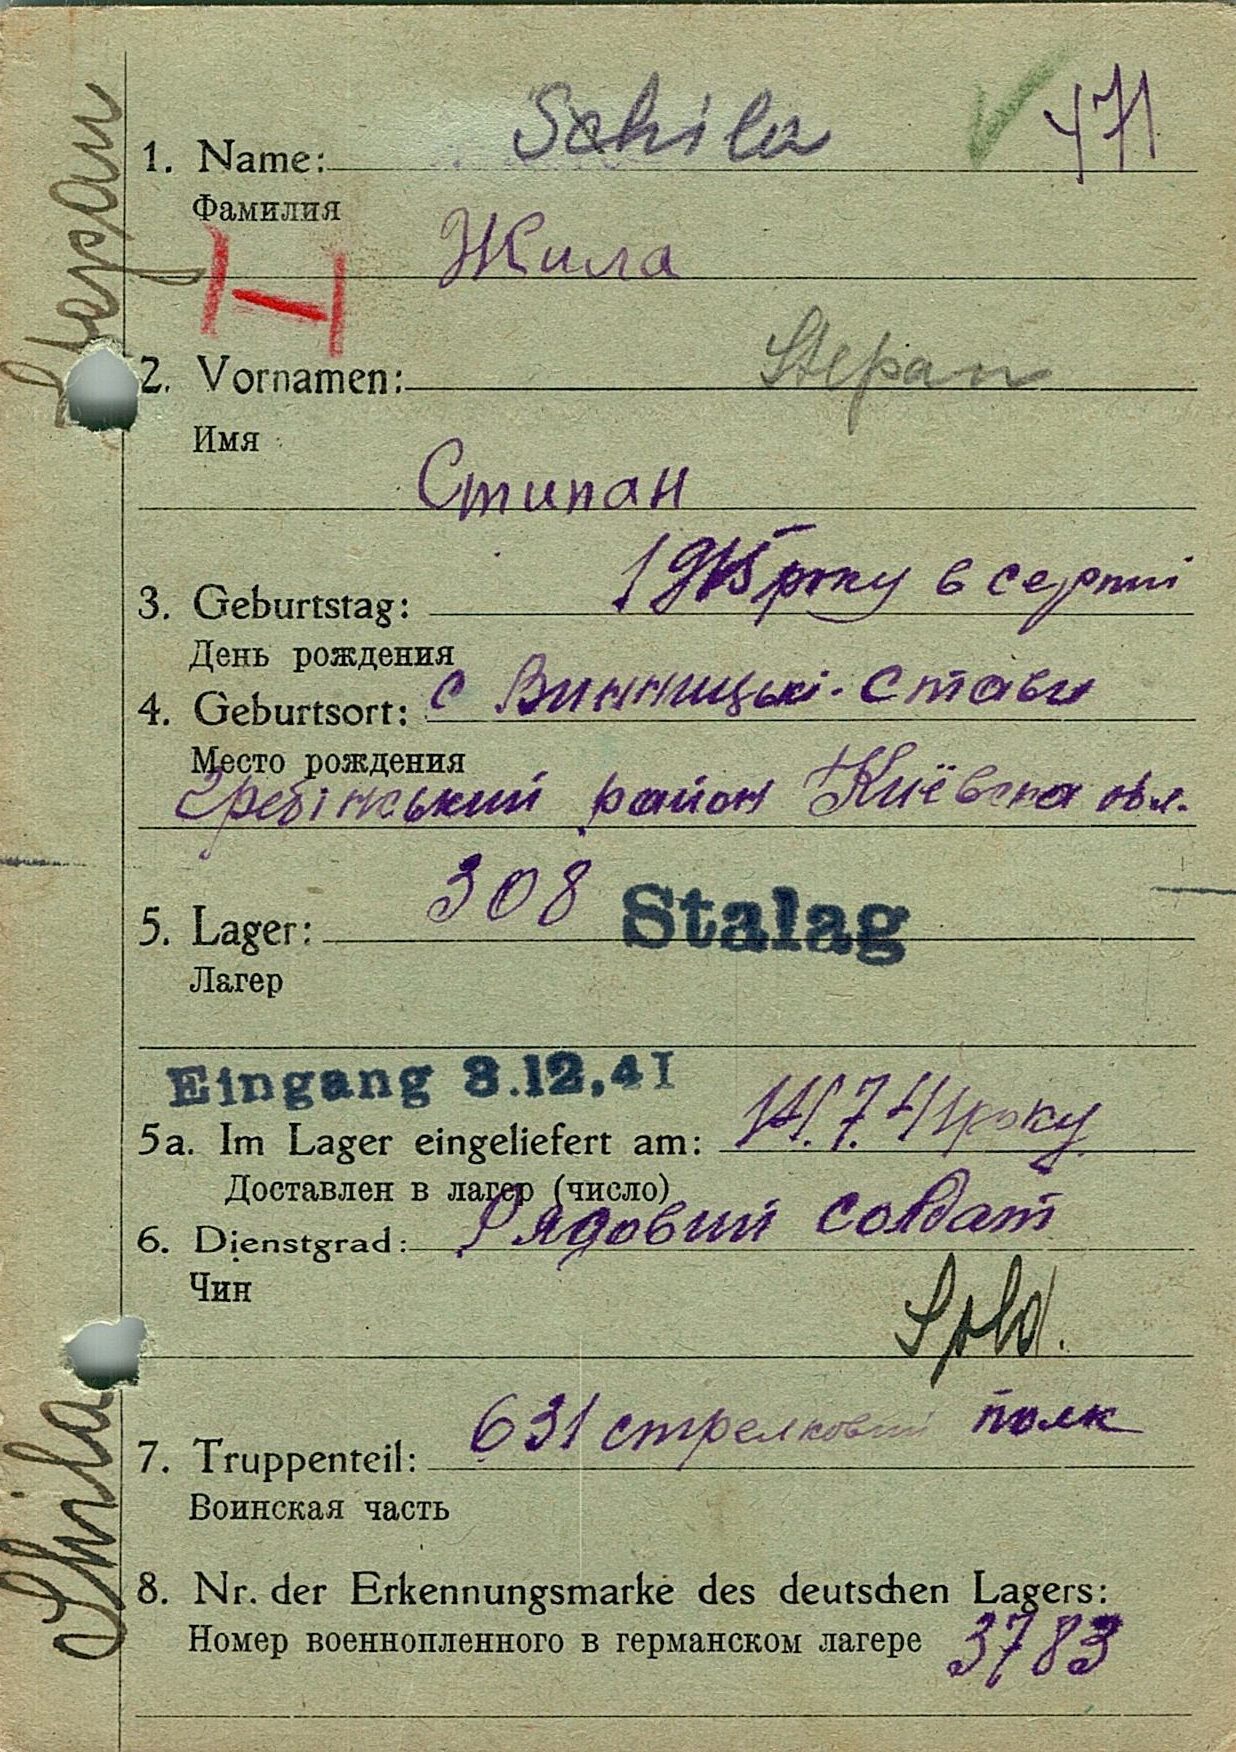 Schila 471
1. Name:
Фамилия
Жила
Stepan
2. Vornamen:
Имя
Стипан
1915 року в серпні
3. Geburtstag:
День рождения
4. Geburtsort: с Винницькі-Стави
Место рождения
Гребінський район Київска обл.
308 Stalag
5. Lager:
Лагер
Eingang 3.12.41
5a. Im Lager eingeliefert am: 14.7.41 року
Доставлен в лагер (число)
6. Dienstgrad: Рядовий солдат
Чин
Sold.
631 стрелковий полк
7. Truppenteil:
Воинская часть
8. Nr. der Erkennungsmarke des deutschen Lagers:
Номер военнопленного в германском лагере 3783
Schila
Stepan